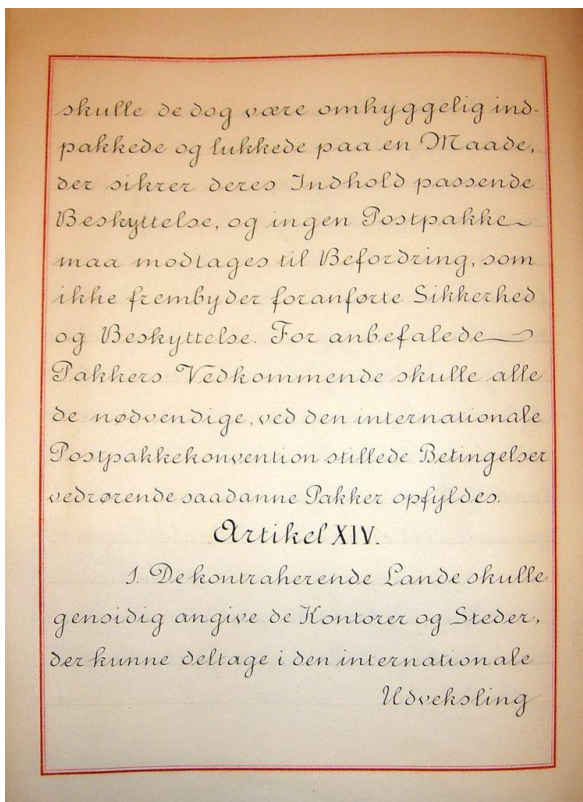 skulle de dog være omhyggelig ind-
pakkede og lukkede paa en Maade,
der sikrer deres Indhold passende
Beskyttelse, og ingen Postpakke
maa modtages til Befordring, som
ikke frembyder foranførte Sikkerhed
og Beskyttelse. For anbefalede
Pakkers Vedkommende skulle alle
de nødvendige, ved den internationale
Postpakkekonvention stillede Betingelser
vedrørende saadanne Pakker opfyldes.
Artikel XIV.
1. De kontraherende Lande skulle
gensidig angive de Kontorer og Steder,
der kunne deltage i den internationale
Udveksling